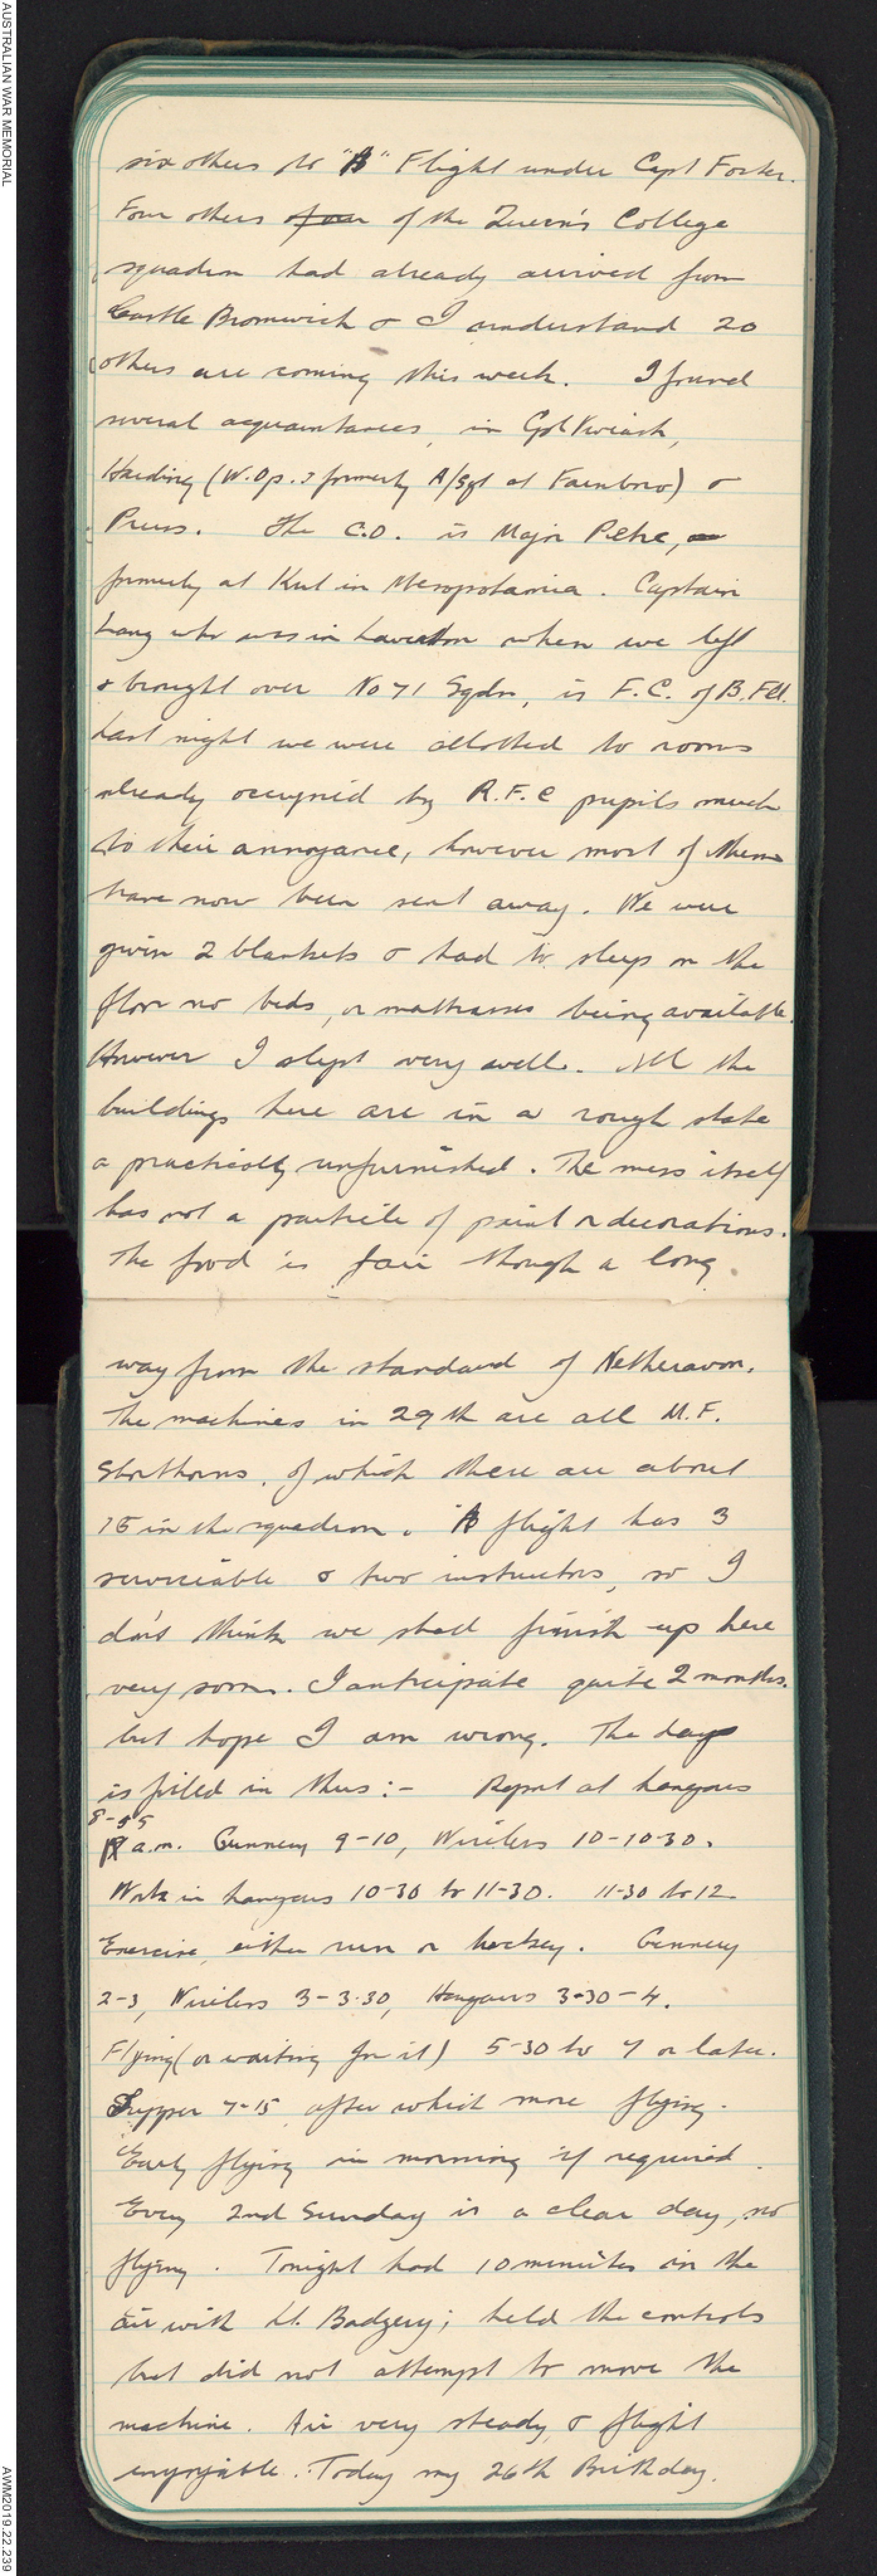 AUSTRALIAN WAR MEMORIAL
six others to "B" Flight under Capt Foster.
Four others of the Queen's College
squadron had already arrived from
Castle Bromwich & I understand 20
others are coming this week. I found
several acquaintances, in Cpl
Harding (W.Op. formerly A/Sgt at Farnboro) &
The C.O. is Major Petre,
formerly at Kut in Mesopotamia. Captain
Lang who was in Laverton when we left
& brought over No 71 Sqdn, is F.C. of B. Flt.
Last night we were allotted to rooms
already occupied by R.F.C pupils much
to their annoyance, however most of them
have now been sent away. We were
given 2 blankets & had to sleep on the
floor no beds, or mattrasses being available.
However I slept very well. All the
buildings here are in a rough state
& practically unfurnished. The mess itself
has not a particle of paint or decorations.
The food is fair though a long
way from the standard of Netheravon.
The machines in 29th are all M.F.
Shorthorns, of which there are about
15 in the squadron. "B flight has 3
serviceable & two instructors, so I
don't think we shall finish up here
very soon. I anticipate quite 2 months.
but hope I am wrong. The day
is filled in thus:- Report at hangars
8-55
a.m. Gunnery 9-10, Wireless 10-10-30.
Work in hangars 10-30 to 11-30. 11-30 to 12
Exercise, either run or hockey. Gunnery
2-3, Wireless 3-3.30, Hangars 3-30-4.
Flying (or waiting for it) 5-30 to 7 or later.
Supper 7-15 after which more flying.
Early flying in morning if required.
Every 2nd Sunday is a clear day, no
flying. Tonight had 10 minutes in the
air with Lt. Badgery; held the controls
but did not attempt to move the
machine. Air very steady & flight
enjoyable. Today my 26th Birthday.
AWM2019.22.239